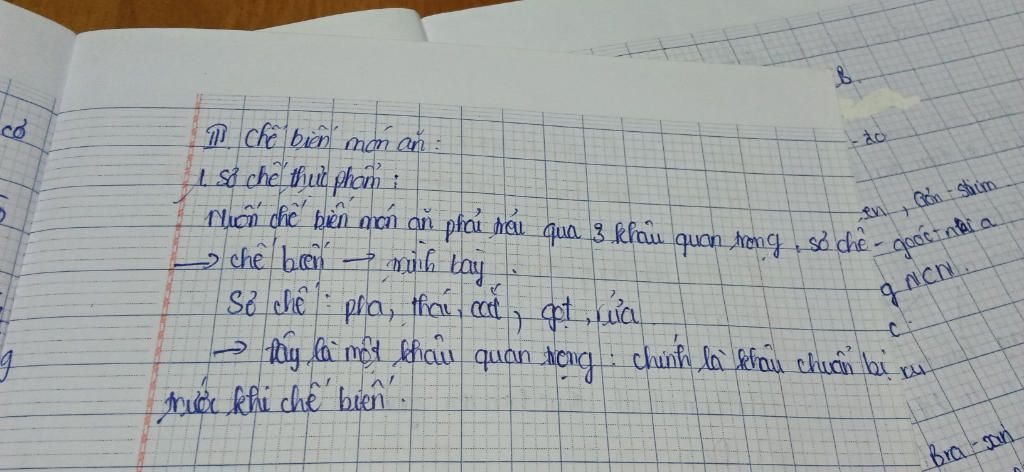 III Chế biến món ăn:
1. Sơ chế thực phẩm:
Muốn chế biến món ăn phải trải qua 3 khâu quan trọng, sơ chế
→ chế biến → trình bày.
Sơ chế: pha, thái, cắt, gọt, rửa
→ Đây là một khâu quan trọng: chính là khâu chuẩn bị
trước khi chế biến.
cở
g
B
- zo
en, Gôn-shim
g NCN.
C.
Bra-san